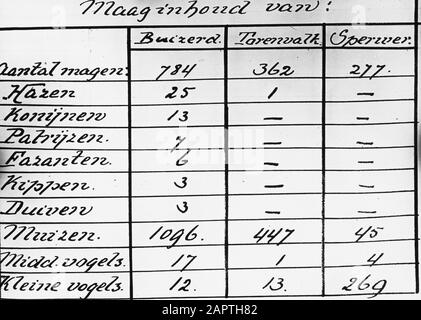 Maaginhoud van:
Buizerd. Torenvalk. Sperwer.
Aantal magen: 784 362 277.
Hazen 25 1 —
Konijnen 13 — —
Patrijzen. 7 — —
Fazanten. 6 — —
Kippen. 3 — —
Duiven 3 — —
Muizen. 1096. 447 45
Midd vogels. 17 1 4
Kleine vogels. 12. 13. 269
alamy
Image ID: 2APTH82
www.alamy.com